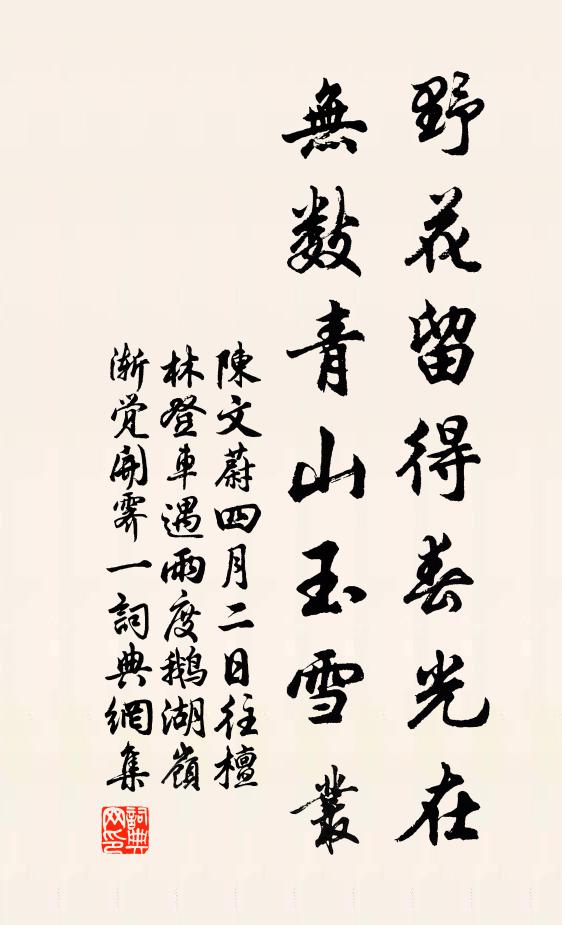 野花留得春光在
無數青山玉雪叢
陳文蔚四月二日往檀
林登車遇雨度鵝湖嶺
漸覺開霽一詞典網集
詞典网印